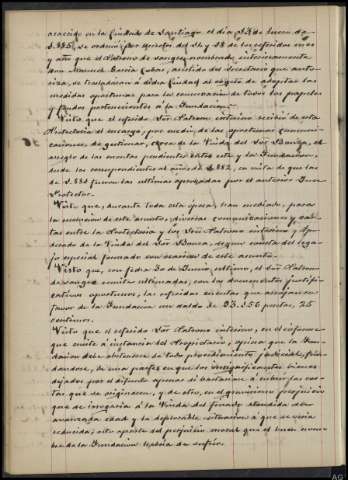 acaecido en la Ciudad de Santiago el día 23 de Enero de
1.885, se ordenó por decretos del 24 y 28 de los referidos mes
y año que el Patrono de sangre nombrado interinamente
Don Manuel García, asistido del Secretario que auto-
riza, se trasladaran á dicha Ciudad al objeto de adoptar las
medidas oportunas para la conservación de todos los papeles
y fondos pertenecientes á la Fundación.
Visto que el referido Sor. Patrono interino recibió de esta
Protectoría el encargo, por medio de las oportunas comuni-
caciones, de gestionar, cerca de la Viuda del Sor. Barca, el
arreglo de las cuentas pendientes entre este y la Fundación,
desde las correspondientes al año de 1.882, en vista de que las
de 1.881 fueron las últimas aprobadas por el anterior Juez
Protector.
Visto que, durante toda esta época, han mediado, para
la resolución de este asunto, diversas comunicaciones y car-
tas entre la Protectoría y los Sres. Patrono interino, y Apo-
derado de la Viuda del Sor. Barca, según consta del lega-
jo especial formado con ocasión de este asunto.
Visto que, con fecha 30 de Junio último, el Sor. Patrono
de sangre remite ultimadas, con los documentos justifi-
cativos oportunos, las referidas cuentas que arrojan á
favor de la Fundación un saldo de 23.556 pesetas, 25
centimos.
Visto que el referido Sor. Patrono interino, en el informe
que emite á instancia del Propietario, opina que la Fun-
dación debe abstenerse de todo procedimiento judicial, fun-
dandose, de una parte, en que los insignificantes bienes
dejados por el difunto apenas si bastarian á cubrir las cos-
tas que se originasen, y de otro, en el gravísimo perjuicio
que se irrogaria á la Viuda del finado atendida su
avanzada edad y la deplorable situación á que se veria
reducida; esto aparte del perjuicio moral que el buen nom-
bre de la Fundación habria de sufrir.
AG